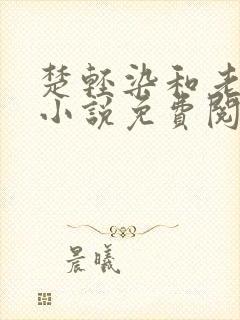 楚轻染和老
小说免費閱
晨曦